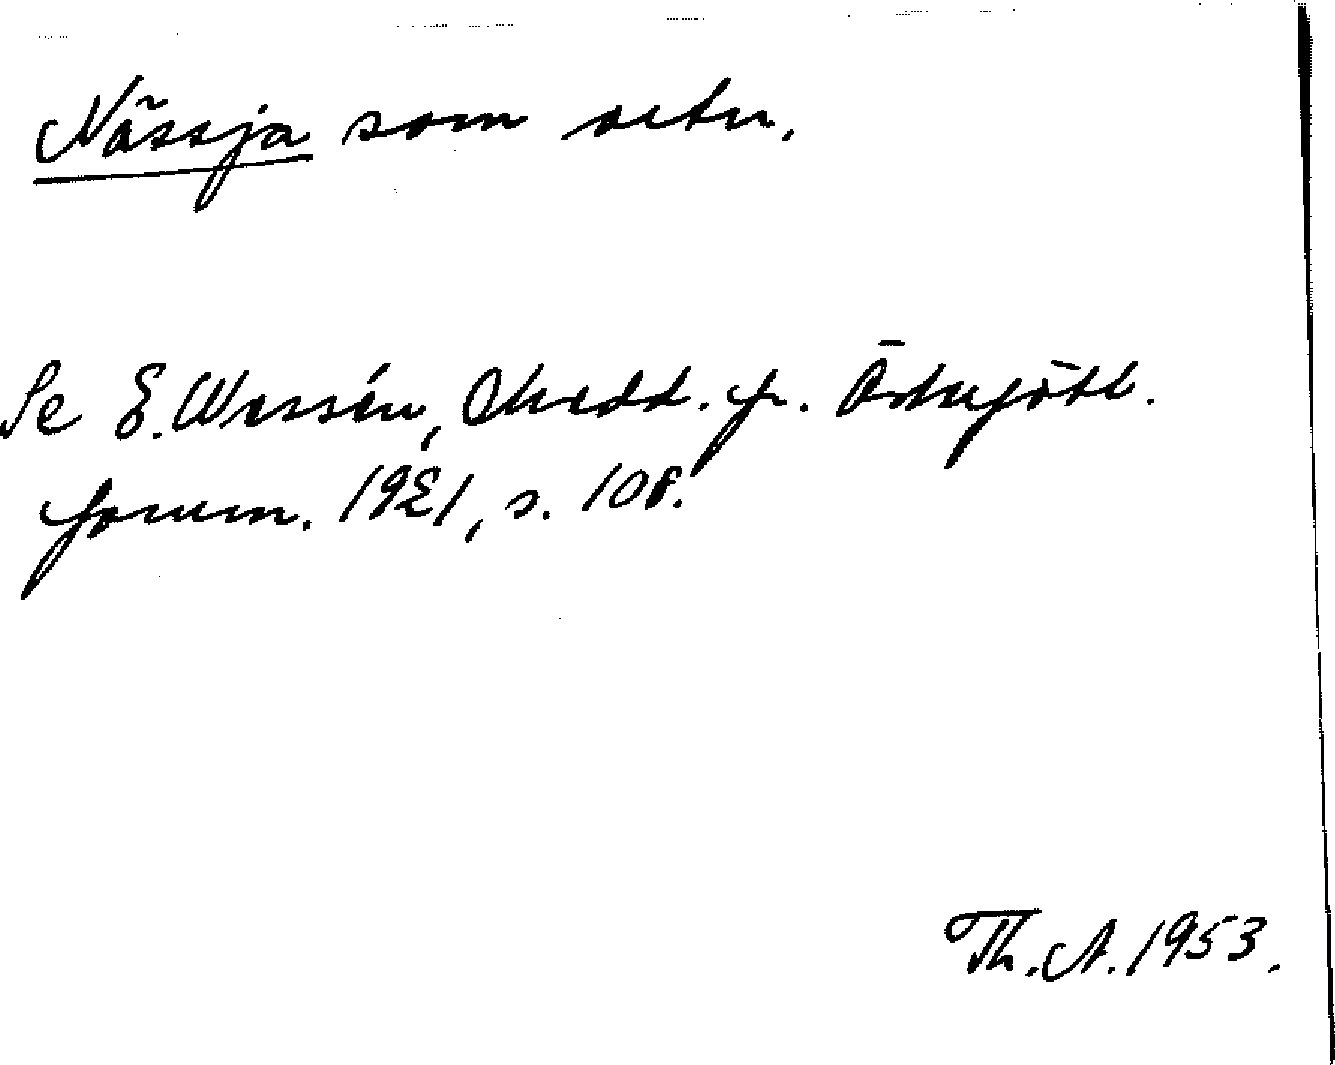 Nässja som ortn.
Se E. Wessén, Medd. fr. Östergötl.
fornm. 1921, s. 108.
Th. A. 1953.